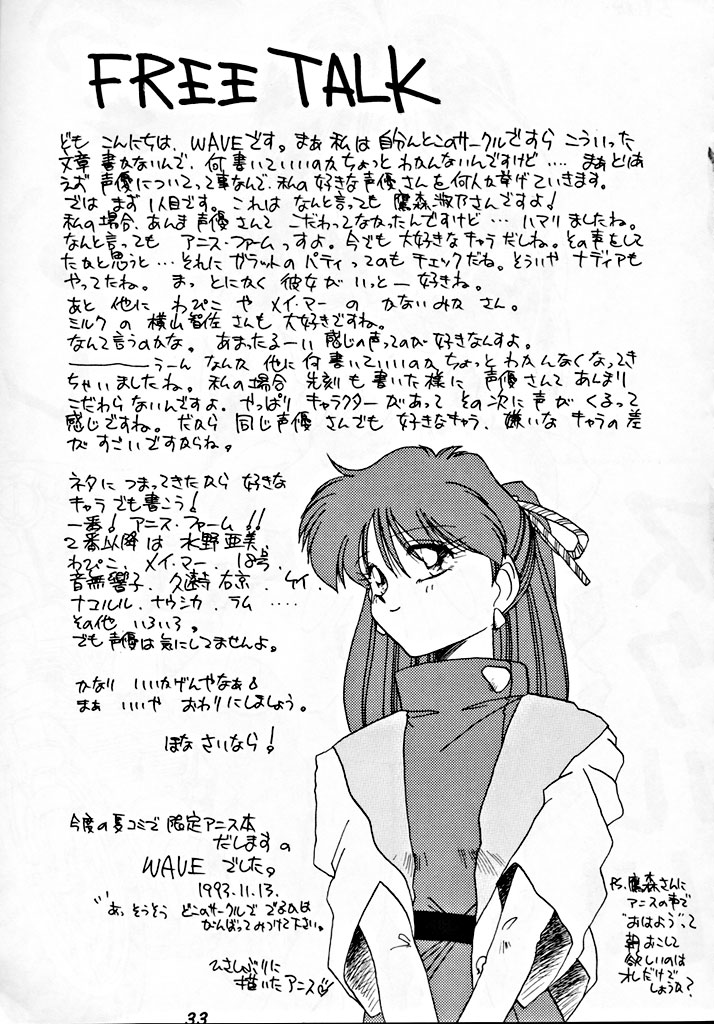 FREE TALK
ども こんにちは、WAVEです。まぁ 私は 自分んとこのサークルですら こういった
文章 書かないんで、何書いていいのか ちょっと わかんないんですけど‥‥ まぁ とりあ
えず 声優についてって事なんで、私の 好きな 声優さんを 何人か 挙げていきます。
では まず 1人目です。これは なんと言っても 鷹森淑乃さんですよ!
私の場合、あんま 声優さんて こだわってなかったんですけど… ハマりましたね。
なんと言っても アニス・ファームっすよ。今でも 大好きな キャラだしね。その声をして
たかと思うと…それに ガラットの パティってのも チェックだね。そういや ナディアも
やってたね。 まっ とにかく 彼女が いっとー 好きね。
あと 他に わぴこ や メイ・マー の かないみか さん。
ミルク の 横山智佐 さんも 大好きですね。
なんて言うのかな。 あまったるーい 感じの声ってのが 好きなんすよ。
――――うーん なんか 他に 何書いていいのか ちょっと わかんなくなってき
ちゃいましたね。 私の場合 先刻も 書いた様に 声優さんて あんまり
こだわらないんですよ。やっぱり キャラクターがあって その次に 声が くるって
感じですね。だから 同じ声優 さんでも 好きなキャラ、 嫌いな キャラの差
が すごいですからね。
ネタに つまってきたから 好きな
キャラでも書こう!
一番! アニス・ファーム!!
2番以降は 水野亜美、
わぴこ、メイ・マー、18号、
音無響子、久遠寺右京、ケイ、
ナコルル、ナウシカ、ラム ‥‥
その他 いろいろ。
でも 声優は気にしてませんよ。
かなり いいかげんやなぁ
まぁ いいや おわりにしましょう。
ほな さいなら!
今度の夏コミで 限定アニス本
だします の
WAVE でした。
1993.11.13.
あ、そうそう どこのサークルで でるかは
がんばってみつけて下さい。
ひさしぶりに
描いたアニス♡
PS. 鷹森さんに
アニスの声で
"おはよう"って
朝 おこして
欲しいのは
オレだけで
しょうか?
33